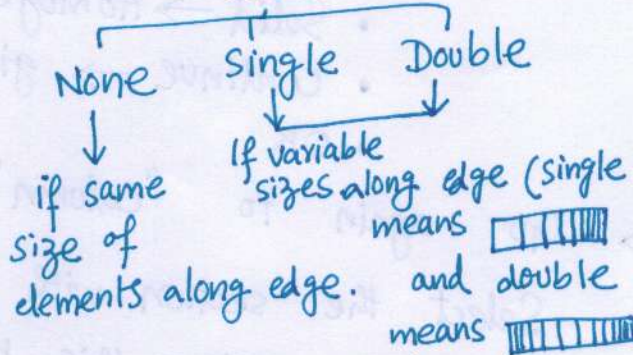 None Single Double
if same
size of
elements along edge.
If variable
sizes along edge (single
means
and double
means